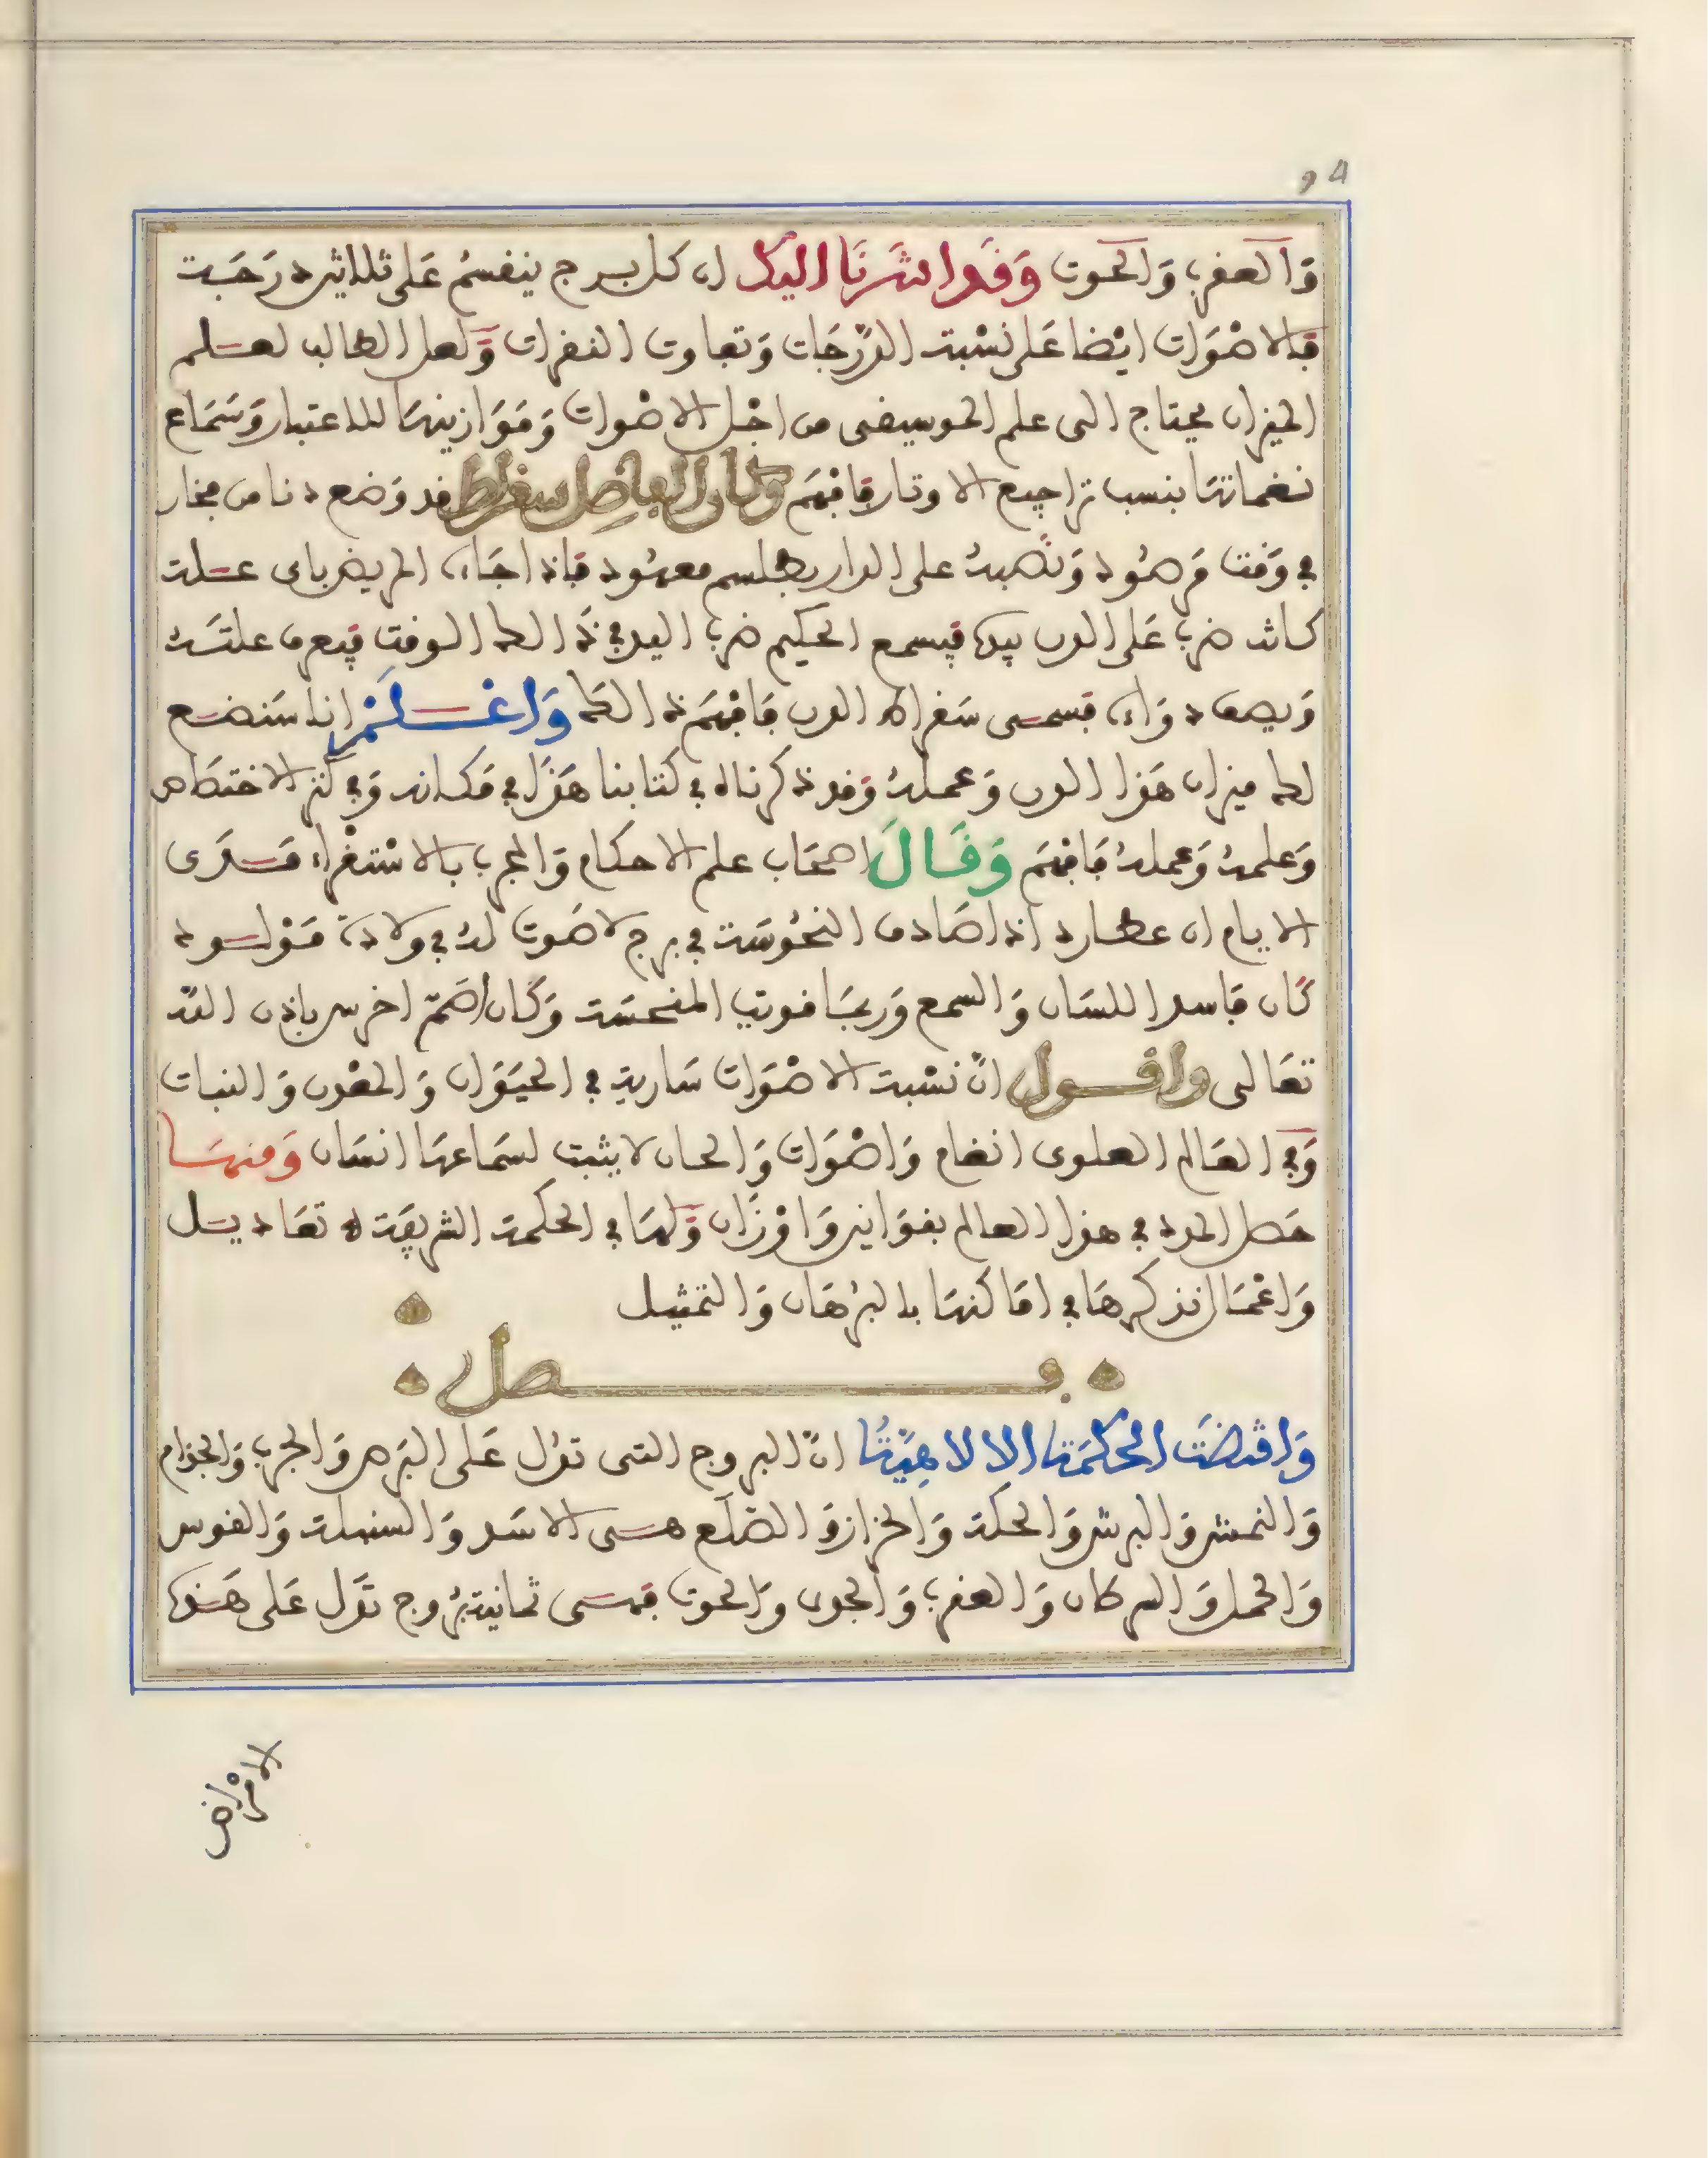 94
وَالعقرب وَالحوت وَقد اشرنا اليك ان كل برج ينقسم عَلى ثلاثين درَجَة
فالاصْوَات ايْضا عَلى نسْبة الدّرَجَات وَتفاوت النقرات وَلعل الطالب لعلم
الميزان يحتاج الى علم الموسيقى من اجْل الاصْوات وَمَوَازينهَا للاعتبار وَسَمَاع
نغماتهَا بنسب تراجيع الاوتار فافهَم وكان الفاضل سقراط قد وَضع دنا من فخار
في وَقت مَرصُود وَنصبهُ على الدار بطلسم معهُود فاذا جَاء المريض باى علة
كانت ضرب عَلى الدن بيده فيسمع الحكيم ضرب اليد في ذَالك الوقت فيعرف علتهُ
وَيصف دوَاءه فسمى سَقراط الدن فافهَم ذالك وَاعْلَمْ اننا سَنضع
لك ميزان هَذا الدن وَعملهُ وَقد ذكرناه في كتابنا هَذا في مَكانه وَفي كنز الاختصَاص
وَعلمهُ وَعملهُ فافهَم وَقَالَ اصحَاب علم الاحكام وَالمجرب بالاسْتقراء مَدَى
الايام ان عطارد اذا صَادف النحُوسَة في برج لا صَوت لهُ في ولادة مَوْلود
كَان فاسد اللسَان وَالسمع وَربمَا قويت المنحسَة وَكَان اصَم اخرس باذن الله
تعَالى واقول انّ نسْبة الاصْوَات سَارية في الحيَوَان وَالمعْدن وَالنبات
وَفي العَالم العلوى انغام وَاصْوَات وَالحان لا يثبت لسَماعهَا انسَان وَمنهَا
حَصل المدد في هذا العالم بقوَانين وَاوْزَان وَلهَا في الحكمة الشريفَة تعَاديل
وَاعْمَال نذكرهَا في امَاكنهَا بالبرْهَان وَالتمثيل
فصل
وَاقتضَت الحكمَة الالاهِيّة انّ البروج التى تدُل عَلى البَرص وَالجرب وَالجذام
وَالنمش وَالبرش وَالحكة وَالحزاز وَالصّلَع هى الاسَد وَالسنبلة وَالقوس
وَالحمل وَالسركان وَالعقرب وَالجدى وَالحوت فهى ثمانية برُوج تدَل عَلى هَذه
الامْرَاض